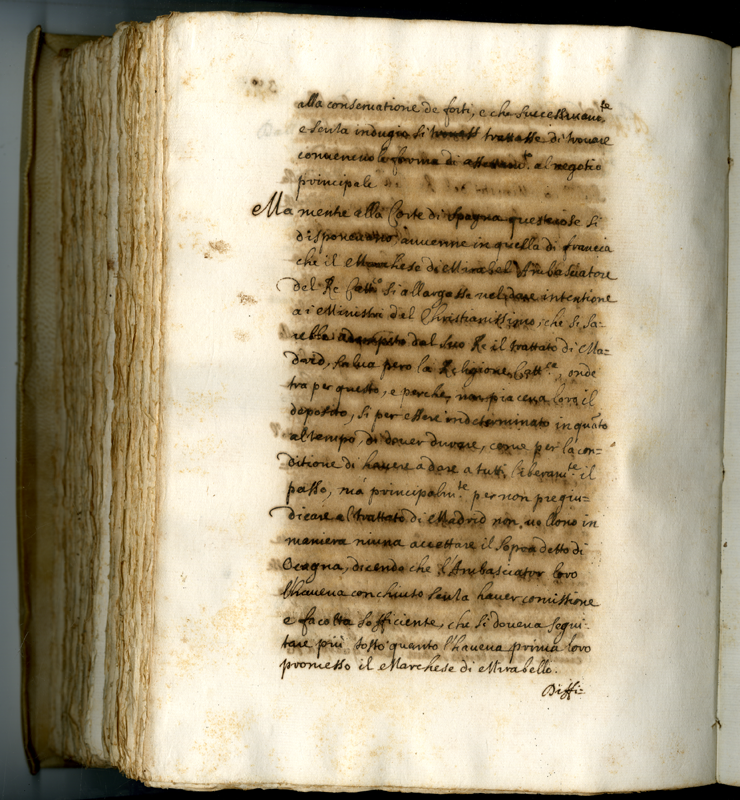 alla conseruatione de forti, e che successiuam.te
e senza indugio si trouass trattasse di trouare
conueneuole forma di assettam.to al negotio
principale.
Ma mentre alla Corte di Spagna queste cose si
disponeuano, auuenne in quella di francia
che il Marchese di Mirabel Ambasciatore
del Re Catt.o si allargasse nel dare intentione
a i Ministri del Christianissimo, che si sa=
rebbe adempito dal suo Re il trattato di Ma=
drid, salua pero la Religione Catt.ca, onde
tra per questo, e perche non piaceua loro il
deposito, si per essere indeterminato in quãto
al tempo, di douer durare, come per la con=
ditione di hauere a dare a tutti liberam.te il
passo, mà principalm.te per non pregiu=
dicare al trattato di Madrid non uollono in
maniera niuna accettare il sopradetto di
Ocagna, dicendo che l'Ambasciator loro
l'haueua conchiuso senza hauer comissione
e facolta sofficiente, che si doueua segui=
tare più tosto quanto l'haueua prima loro
promesso il Marchese di Mirabello.
Diffi=